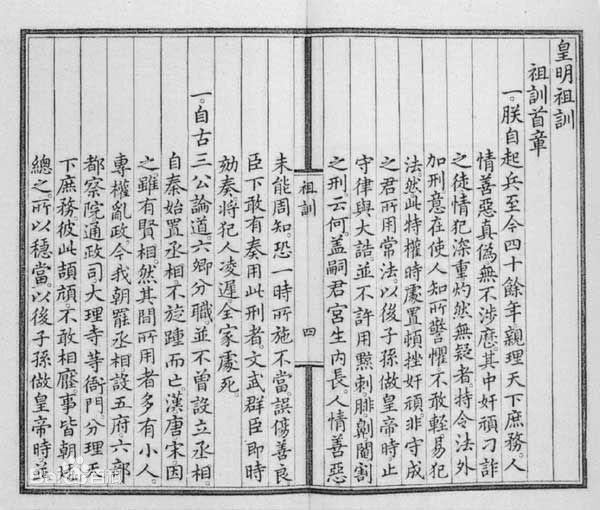 皇明祖訓
祖訓首章
一。朕自起兵至今四十餘年親理天下庶務。人
情善惡真偽無不涉歷其中奸頑刁詐
之徒情犯深重灼然無疑者。特令法外
加刑意在使人知所警懼不敢輕易犯
法。然此特權時處置頓挫奸頑非守成
之君所用常法。以後子孫做皇帝時止
守律與大誥並不許用黥刺腓劓閹割
之刑云何。蓋嗣君宮生內長。人情善惡
祖訓
四
未能周知。恐一時所施不當。誤傷善良
臣下敢有奏用此刑者。文武群臣即時
劾奏將犯人凌遲全家處死。
一。自古三公論道六卿分職並不曾設立丞相
自秦始置丞相不旋踵而亡。漢唐宋因
之雖有賢相然其間所用者多有小人。
專權亂政。今我朝罷丞相設五府六部
都察院通政司。大理寺等衙門。分理天
下庶務。彼此頡頏。不敢相壓事皆朝廷
總之。所以穩當。以後子孫做皇帝時並